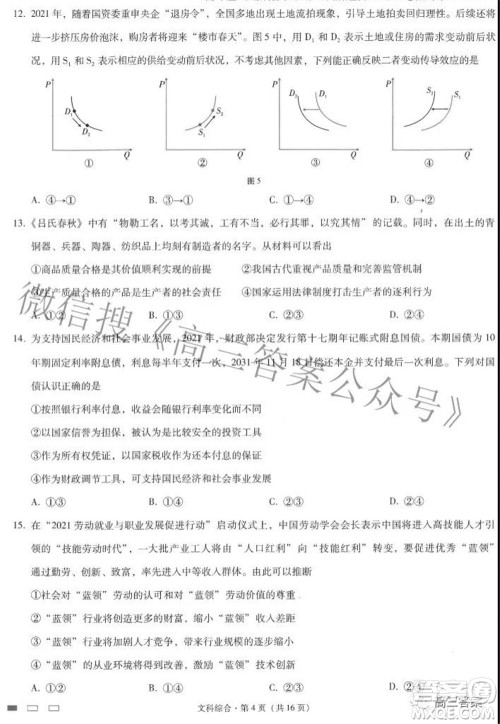 12. 2021年，随着国资委重申央企“退房令”，全国多地出现土地流拍现象，引导土地拍卖回归理性。后续还将
进一步挤压房价泡沫，购房者将迎来“楼市春天”。图5中，用D₁和D₂表示土地或住房的需求变动前后状
况，用S₁和S₂表示相应的供给变动前后状况，不考虑其他因素，下列能正确反映二者变动传导效应的是
P P P P
D₁ D₂ S₂ S₁ D₂ D₁ S₂ S₁
O Q O Q O Q O Q
① ② ③ ④
图5
A. ④→① B. ③→① C. ③→② D. ④→②
13.《吕氏春秋》中有“物勒工名，以考其诚，工有不当，必行其罪，以究其情”的记载。同时，在出土的青
铜器、兵器、陶器、纺织品上均刻有制造者的名字。从材料可以看出
①商品质量合格是其价值顺利实现的前提 ②我国古代重视产品质量和完善监管机制
③生产质量合格的产品是生产者的社会责任 ④国家运用法律制度打击生产者的逐利行为
A. ①③ B. ①④ C. ②③ D. ②④
14. 为支持国民经济和社会事业发展，2021年，财政部决定发行第十七期年记账式附息国债。本期国债为10
年期固定利率附息债，利息每半年支付一次，2031年11月18日偿还本金并支付最后一次利息。下列对国
债认识正确的是
①按照银行利率付息，收益会随银行利率变化而不同
②以国家信誉为担保，被认为是比较安全的投资工具
③以国有银行为依托，为社会提供完善的支付服务
④作为财政调节工具，可支持国民经济和社会事业发展
A. ①③ B. ①④ C. ②③ D. ②④
15. 在“2021劳动就业与职业发展促进行动”启动仪式上，中国劳动学会会长表示中国将进入高技能人才引
领的“技能劳动时代”，一大批产业工人将由“人口红利”向“技能红利”转变，要促进优秀“蓝领”
通过勤劳、创新、致富，不断成为中等收入群体。由此可以推断
①社会对“蓝领”劳动的认可和对劳动价值的尊重
②“蓝领”行业将创造更多的财富，缩小“蓝领”收入差距
③“蓝领”行业将加剧人才竞争，带来更大规模的社会就业
④“蓝领”行业将提高劳动者素质，推动“蓝领”技术创新
A. ①③ B. ①④ C. ②③ D. ②④
文科综合·第4页（共16页）
微信搜《高三答案公众号》
高三答案